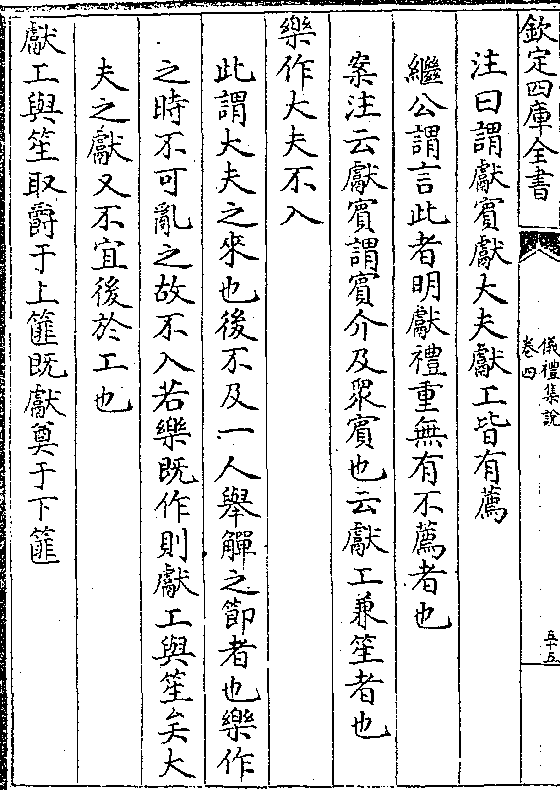 欽定四庫全書
儀禮集說
卷四
五十五
注曰謂獻賓獻大夫獻工皆有薦
繼公謂言此者明獻禮重無有不薦者也
案注云獻賓謂賓介及眾賓也云獻工兼笙者也
樂作大夫不入
此謂大夫之來也後不及一人舉觶之節者也樂作
之時不可亂之故不入若樂既作則獻工與笙矣大
夫之獻又不宜後於工也
獻工與笙取爵于上篚既獻奠于下篚